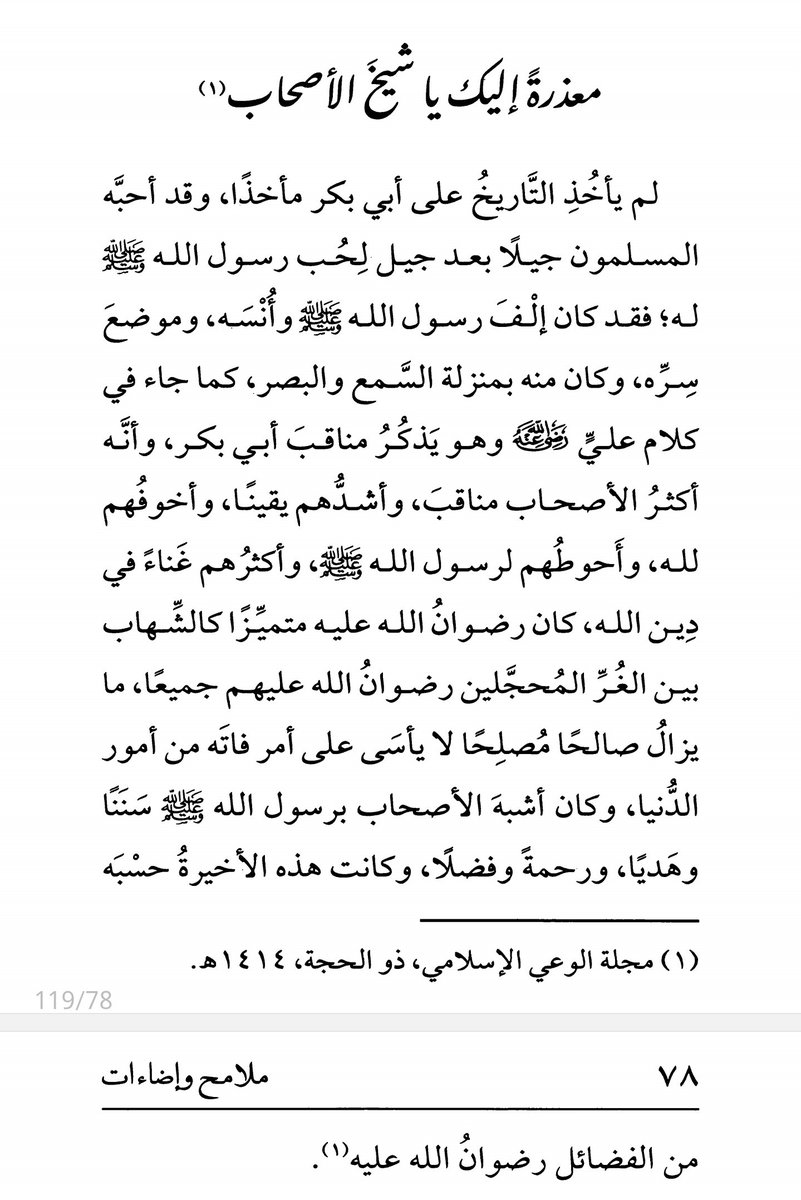 معذرةً إليك يا شيخَ الأصحاب(١)
لم يأخُذِ التَّاريخُ على أبي بكر مأخذًا، وقد أحبَّه
المسلمون جيلًا بعد جيل لِحُب رسول الله ﷺ
له؛ فقد كان إلْفَ رسول الله ﷺ وأُنْسَه، وموضعَ
سِرِّه، وكان منه بمنزلة السَّمع والبصر، كما جاء في
كلام عليٍّ رضي الله عنه وهو يَذكُرُ مناقبَ أبي بكر، وأنَّه
أكثرُ الأصحاب مناقبَ، وأشدُّهم يقينًا، وأخوفُهم
لله، وأَحوطُهم لرسول الله ﷺ، وأكثرُهم غَناءً في
دِين الله، كان رضوانُ الله عليه متميِّزًا كالشِّهاب
بين الغُرِّ المُحجَّلين رضوانُ الله عليهم جميعًا، ما
يزالُ صالحًا مُصلِحًا لا يأسَى على أمر فاتَه من أمور
الدُّنيا، وكان أشبهَ الأصحاب برسول الله ﷺ سَنَنًا
وهَديًا، ورحمةً وفضلًا، وكانت هذه الأخيرةُ حسْبَه
(١) مجلة الوعي الإسلامي، ذو الحجة، ١٤١٤هـ.
119/78
٧٨ ملامح وإضاءات
من الفضائل رضوانُ الله عليه(١).